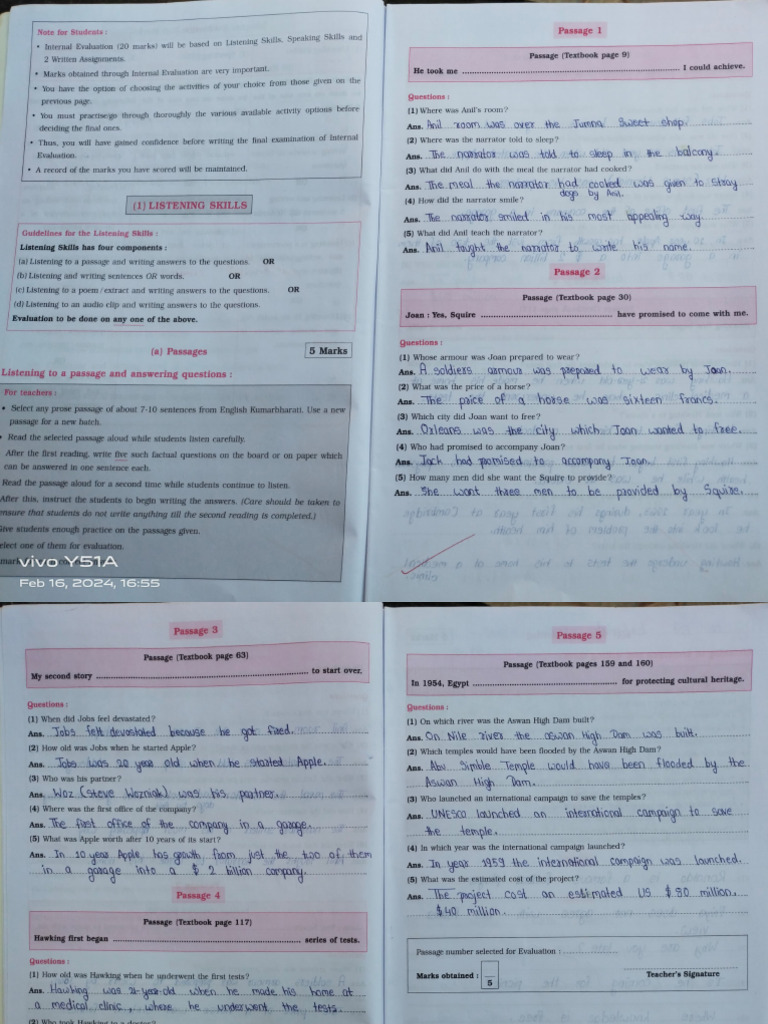 Note for Students :
• Internal Evaluation (20 marks) will be based on Listening Skills, Speaking Skills and
2 Written Assignments.
• Marks obtained through Internal Evaluation are very important.
• You have the option of choosing the activities of your choice from those given on the
previous page.
• You must practise/go through thoroughly the various available activity options before
deciding the final ones.
• Thus, you will have gained confidence before writing the final examination of Internal
Evaluation.
• A record of the marks you have scored will be maintained.
(1) LISTENING SKILLS
Guidelines for the Listening Skills :
Listening Skills has four components :
(a) Listening to a passage and writing answers to the questions. OR
(b) Listening and writing sentences OR words. OR
(c) Listening to a poem/extract and writing answers to the questions. OR
(d) Listening to an audio clip and writing answers to the questions.
Evaluation to be done on any one of the above.
(a) Passages 5 Marks
Listening to a passage and answering questions :
For teachers :
• Select any prose passage of about 7-10 sentences from English Kumarbharati. Use a new
passage for a new batch.
• Read the selected passage aloud while students listen carefully.
After the first reading, write five such factual questions on the board or on paper which
can be answered in one sentence each.
Read the passage aloud for a second time while students continue to listen.
After this, instruct the students to begin writing the answers. (Care should be taken to
ensure that students do not write anything till the second reading is completed.)
Give students enough practice on the passages given.
elect one of them for evaluation.
vivo Y51A
Feb 16, 2024, 16:55
Passage 1
Passage (Textbook page 9)
He took me .......... I could achieve.
Questions :
(1) Where was Anil's room?
Ans. Anil room was over the Jumna Sweet shop.
(2) Where was the narrator told to sleep?
Ans. The narrator was told to sleep in the balcony.
(3) What did Anil do with the meal the narrator had cooked?
Ans. The meal the narrator had cooked was given to stray
dogs by Anil.
(4) How did the narrator smile?
Ans. The narrator smiled in his most appealing way.
(5) What did Anil teach the narrator?
Ans. Anil taught the narrator to write his name.
Passage 2
Passage (Textbook page 30)
Joan : Yes, Squire .......... have promised to come with me.
Questions :
(1) Whose armour was Joan prepared to wear?
Ans. A soldiers armour was prepared to wear by Joan.
(2) What was the price of a horse?
Ans. The price of a horse was sixteen francs.
(3) Which city did Joan want to free?
Ans. Orleans was the city which Joan wanted to free.
(4) Who had promised to accompany Joan?
Ans. Jack had promised to accompany Joan.
(5) How many men did she want the Squire to provide?
Ans. She want three men to be provided by Squire.
Passage 3
Passage (Textbook page 63)
My second story .......... to start over.
Questions :
(1) When did Jobs feel devastated?
Ans. Jobs felt devastated because he got fired.
(2) How old was Jobs when he started Apple?
Ans. Jobs was 20 year old when he started Apple.
(3) Who was his partner?
Ans. Woz (Steve Wozniak) was his partner.
(4) Where was the first office of the company?
Ans. The first office of the company in a garage.
(5) What was Apple worth after 10 years of its start?
Ans. In 10 year Apple has growth from just the two of them
in a garage into a $ 2 billion company.
Passage 4
Passage (Textbook page 117)
Hawking first began .......... series of tests.
Questions :
(1) How old was Hawking when he underwent the first tests?
Ans. Hawking was 21-year-old when he made his home at
a medical clinic, where he underwent the tests.
(2) Who took Hawking to a doctor?
Passage 5
Passage (Textbook pages 159 and 160)
In 1954, Egypt .......... for protecting cultural heritage.
Questions :
(1) On which river was the Aswan High Dam built?
Ans. On Nile river the aswan High Dam was built.
(2) Which temples would have been flooded by the Aswan High Dam?
Ans. Abu Simble Temple would have been flooded by the
Aswan High Dam.
(3) Who launched an international campaign to save the temples?
Ans. UNESCO launched an international campaign to save
the temple.
(4) In which year was the international campaign launched?
Ans. In year 1959 the international campaign was launched.
(5) What was the estimated cost of the project?
Ans. The project cost an estimated US $ 80 million.
$ 40 million.
Passage number selected for Evaluation : ..........
Marks obtained : 5
Teacher's Signature